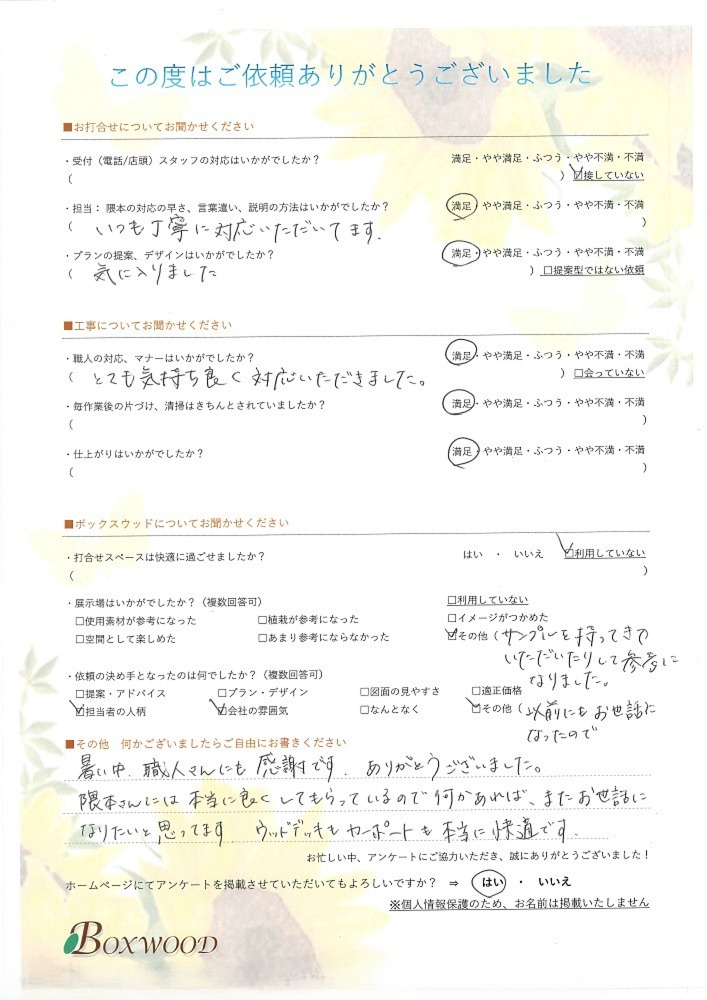 この度はご依頼ありがとうございました
■お打合せについてお聞かせください
・受付（電話/店頭）スタッフの対応はいかがでしたか？ 満足・やや満足・ふつう・やや不満・不満
( ) ☑接していない
・担当： 隈本の対応の早さ、言葉遣い、説明の方法はいかがでしたか？ 満足・やや満足・ふつう・やや不満・不満
( いつも丁寧に対応いただいてます. )
・プランの提案、デザインはいかがでしたか？ 満足・やや満足・ふつう・やや不満・不満
( 気に入りました ) □提案型ではない依頼
■工事についてお聞かせください
・職人の対応、マナーはいかがでしたか？ 満足・やや満足・ふつう・やや不満・不満
( とても気持ち良く対応いただきました。 ) □会っていない
・毎作業後の片づけ、清掃はきちんとされていましたか？ 満足・やや満足・ふつう・やや不満・不満
( )
・仕上がりはいかがでしたか？ 満足・やや満足・ふつう・やや不満・不満
( )
■ボックスウッドについてお聞かせください
・打合せスペースは快適に過ごせましたか？ はい ・ いいえ ☑利用していない
( )
・展示場はいかがでしたか？（複数回答可） □利用していない
□使用素材が参考になった □植栽が参考になった □イメージがつかめた
□空間として楽しめた □あまり参考にならなかった ☑その他（サンプルを持ってきて
いただいたりして参考に
なりました。
・依頼の決め手となったのは何でしたか？（複数回答可）
□提案・アドバイス □プラン・デザイン □図面の見やすさ □適正価格
☑担当者の人柄 ☑会社の雰囲気 □なんとなく ☑その他（以前にもお世話に
なったので
■その他 何かございましたらご自由にお書きください
暑い中、職人さんにも感謝です. ありがとうございました。
隈本さんには本当に良くしてもらっているので何かあれば、またお世話に
なりたいと思ってます ウッドデッキもカーポートも本当に快適です.
お忙しい中、アンケートにご協力いただき、誠にありがとうございました！
ホームページにてアンケートを掲載させていただいてもよろしいですか？ ⇒ はい ・ いいえ
※個人情報保護のため、お名前は掲載いたしません
BOXWOOD